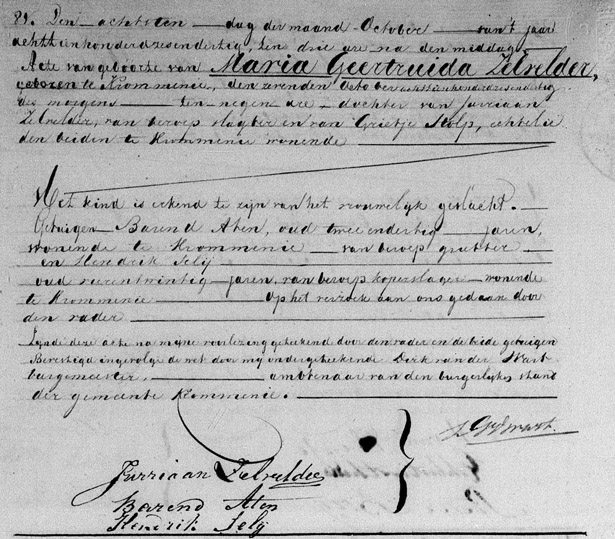 81. Den achtsten dag der maand October van't jaar
achttienhonderdzesendertig, ten drie ure na den middag
Acte van geboorte van Maria Geertruida Zelvelder,
geboren te Krommenie, den zevenden October achttienhonderdzesendertig
des morgens ten negen ure dochter van Jurriaan
Zelvelder, van beroep slagter en van Grietje Stolp, echtelie
den beiden te Krommenie wonende
Het kind is erkend te zijn van het vrouwelijk geslacht.
Getuigen Barend Aten, oud twee endertig jaren,
wonende te Krommenie van beroep grutter
en Hendrik Selij
oud vierentwintig jaren, van beroep koperslager wonende
te Krommenie op het verzoek aan ons gedaan door
den vader
Zynde deze acte na myne voorlezing geteekend door den vader en de beide getuigen
Bevestigd ingevolge de wet door my ondergeteekende Dirk van der Wart
burgemeester, ambtenaar van den burgerlijken stand
der gemeente Krommenie.
Jurriaan Zelvelder
Barend Aten
Hendrik Selij